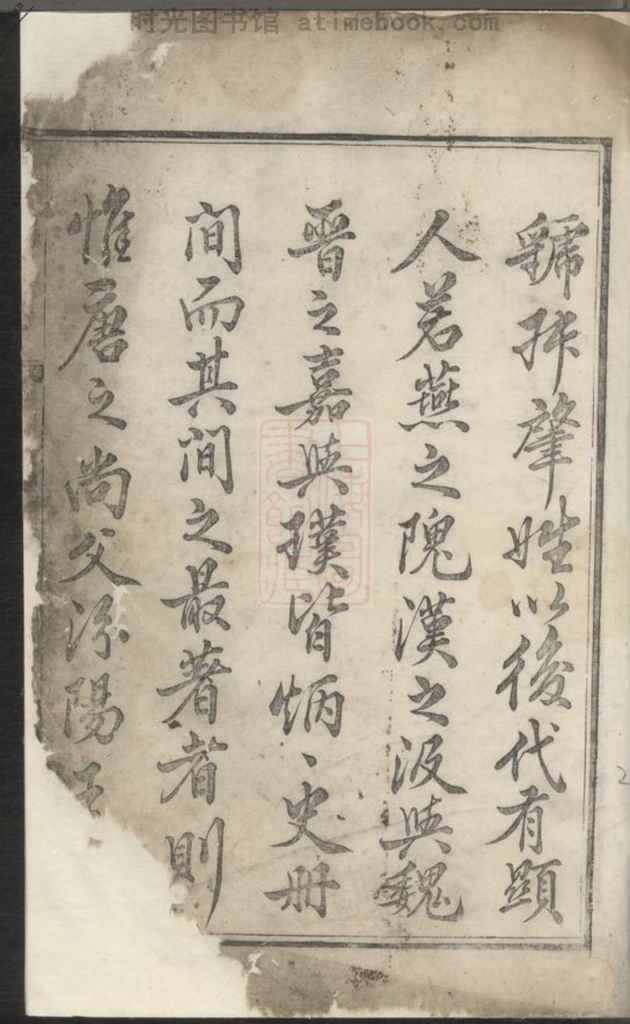 时光图书馆 atimebook.com
虢叔肇姓以後代有顯
人若燕之隗漢之汲與魏
晋之嘉與璞皆炳、史册
间而其间之最著者則
惟唐之尚父汾陽王